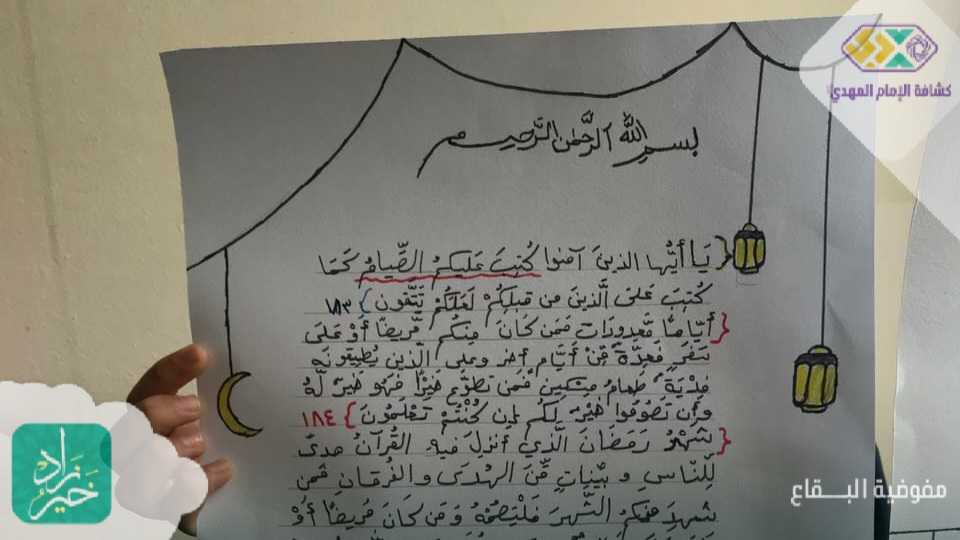 كشافة الإمام المهدي
بسم الله الرحمن الرحيم
{يَا أَيُّها الذينَ آمنوا كُتِبَ عَليكُم الصِّيامُ كَمَا
كُتِبَ عَلى الَّذينَ من قبلِكُمْ لَعَلَّكُمْ تَتَّقون} ١٨٣
{أيّامًا مَّعدودَات فَمَن كَانَ مِنكُم مَّريضًا أَوْ عَلَى
سَفَرٍ فَعِدَّةٌ مِّنْ أَيَّام أخر وعلى الَّذين يُطيقونَه
فِديَةٌ طَعامُ مِسْكِين فَمن تطوَّع خَيرًا فَهو خَيرٌ لَّهُ
وَأَن تَصُومُوا خَيْرٌ لَكُم إِن كُنْتُمْ تَعْلَمُونَ} ١٨٤
{شَهْرُ رَمَضَانَ الَّذي أُنزِلَ فيهِ القُرآنُ هدىً
لِّلنّاسِ وبيِّناتٍ مِّنَ الهُدَى والفُرقانِ فَمن
شَهِدَ منكُم الشَّهرَ فَلْيَصُمْهُ وَمَن كَانَ مَريضًا أَوْ
زاد خير
مفوضية البـــقاع